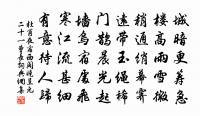 城暗更籌急
樓高雨雪微
稍通綃幕霽
遠帶玉繩稀
門鵲晨光起
墻烏宿處飛
寒江流甚細
有意待人歸
杜甫夜宿西閣曉呈元
二十一曹長詩典網集